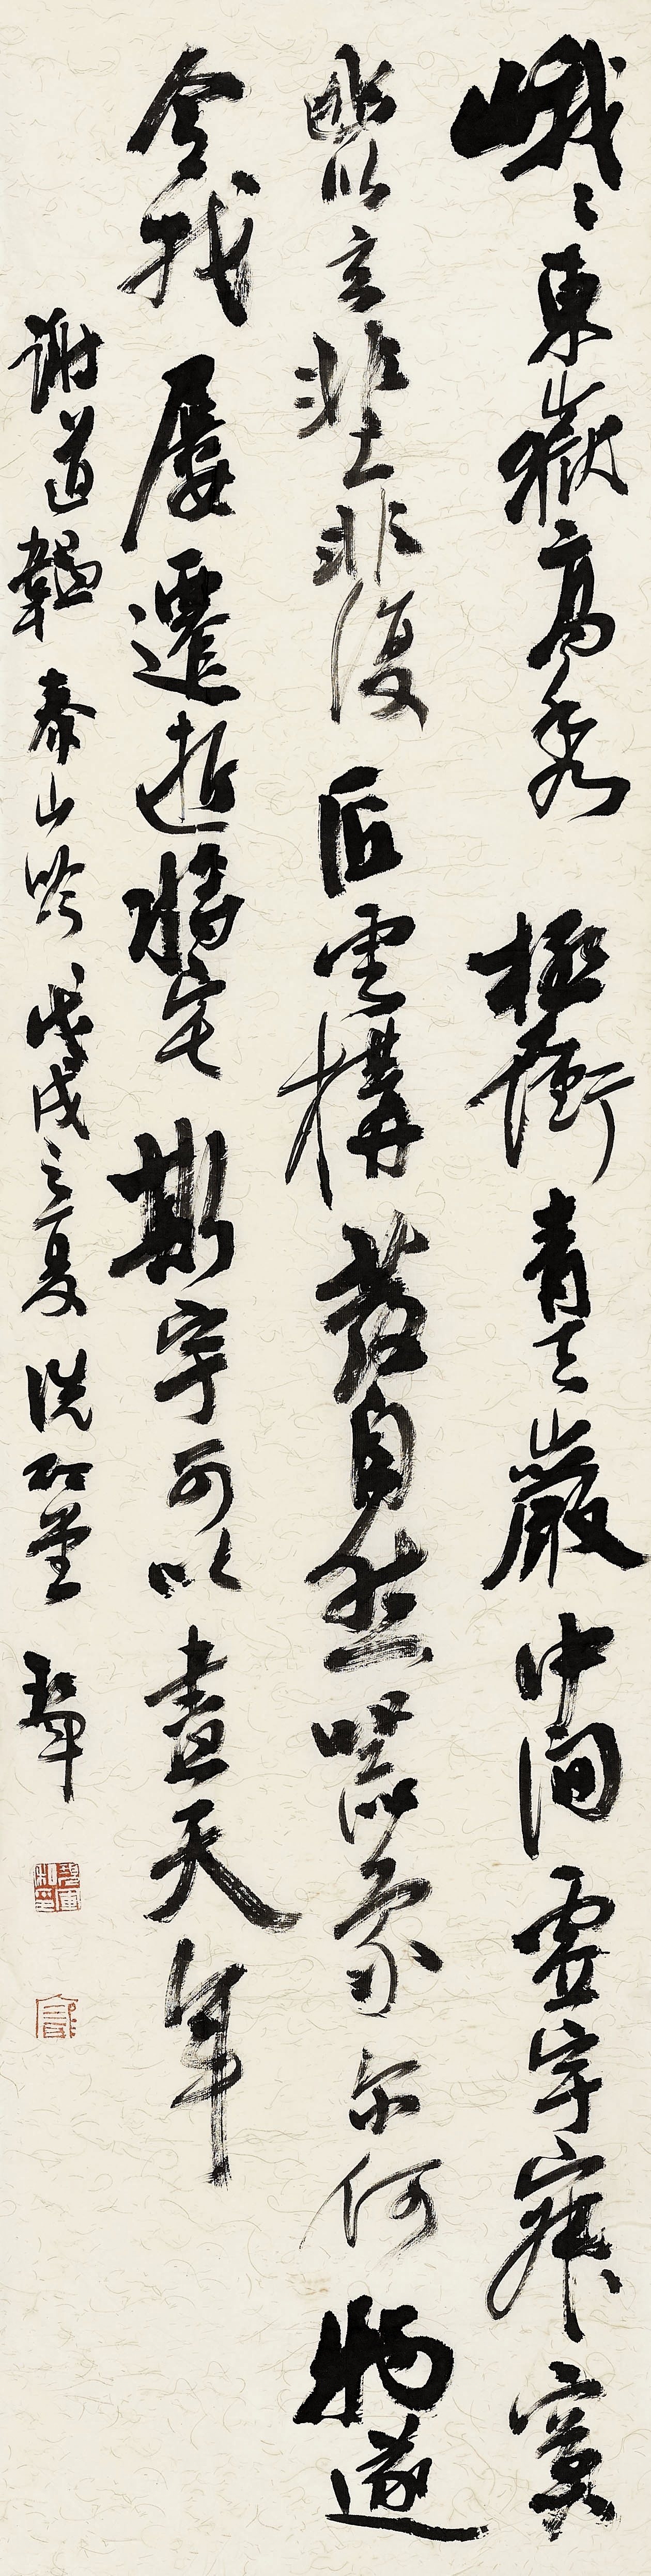 峨〻東嶽高秀極衝青天巖中間虛宇寂寞
幽以玄非工非復匠雲構發自然器象尔何物遂
令我屢遷逝將宅斯宇可以盡天年
謝道韞泰山吟戊戌之夏洗硯堂